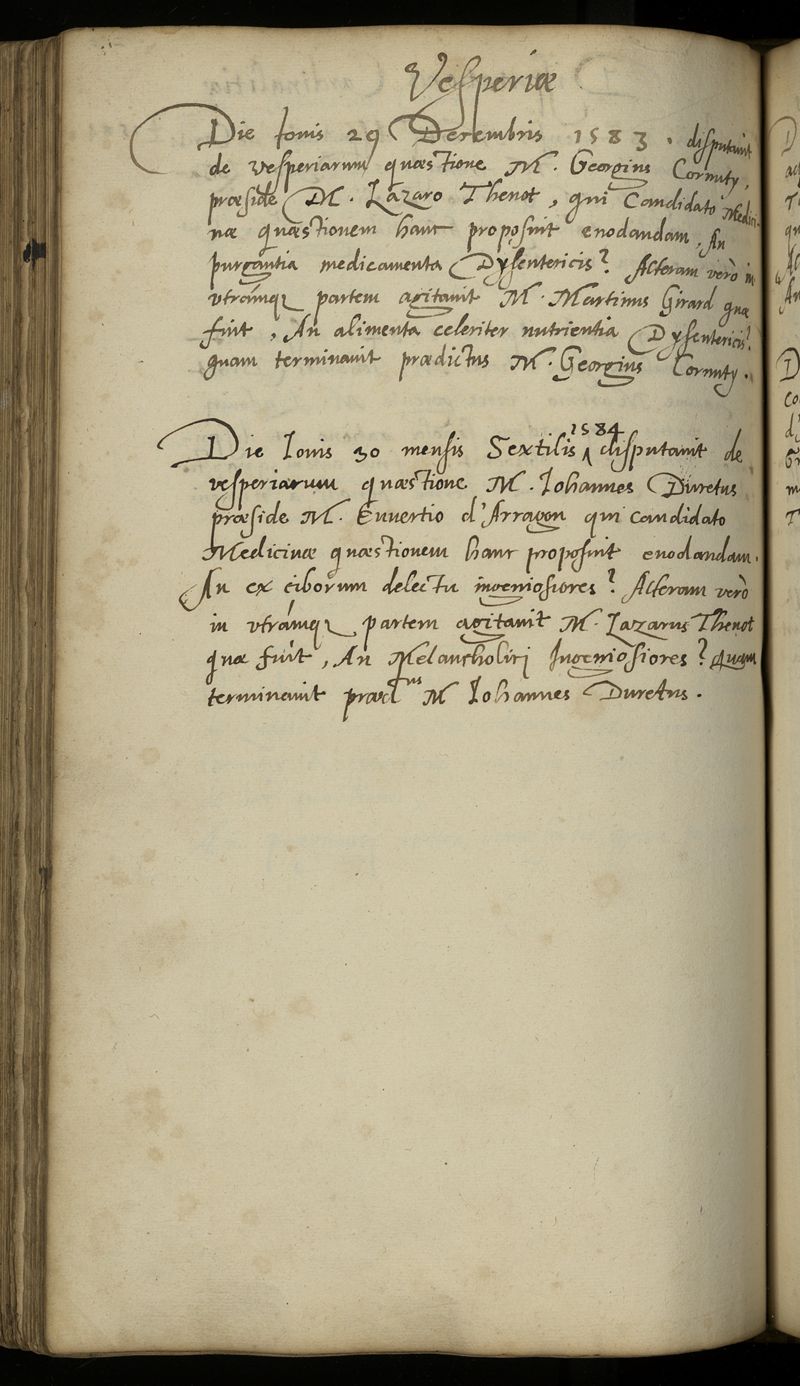 Vesperiæ
Die Iovis 29 Decembris 1583. disputavit
de vesperiarum quæstione M. Georgius Cornuty,
præside M. Lazaro Thenot, qui Candidato Medici-
næ quæstionem hanc proposuit enodandam, An
purgantia medicamenta Dysentericis? Alteram verò in
utrámq; partem agitavit M. Martinus Girard quæ
fuit, An alimenta celeriter nutrientia Dysentericis?
quam terminavit prædictus M. Georgius Cornuty.
Die Iovis 30 mensis Sextilis 1584 disputavit de
vesperiarum quæstione M. Iohannes Duretus
præside M. Evvertio d'Arragon qui candidato
Medicinæ quæstionem hanc proposuit enodandam.
An ex ciborum delectu ingeniosiores? Alteram verò
in utrámq; partem agitavit M. Lazarus Thenot
quæ fuit, An Melancholici Ingeniosiores? quam
terminavit præd^us M Iohannes Duretus.